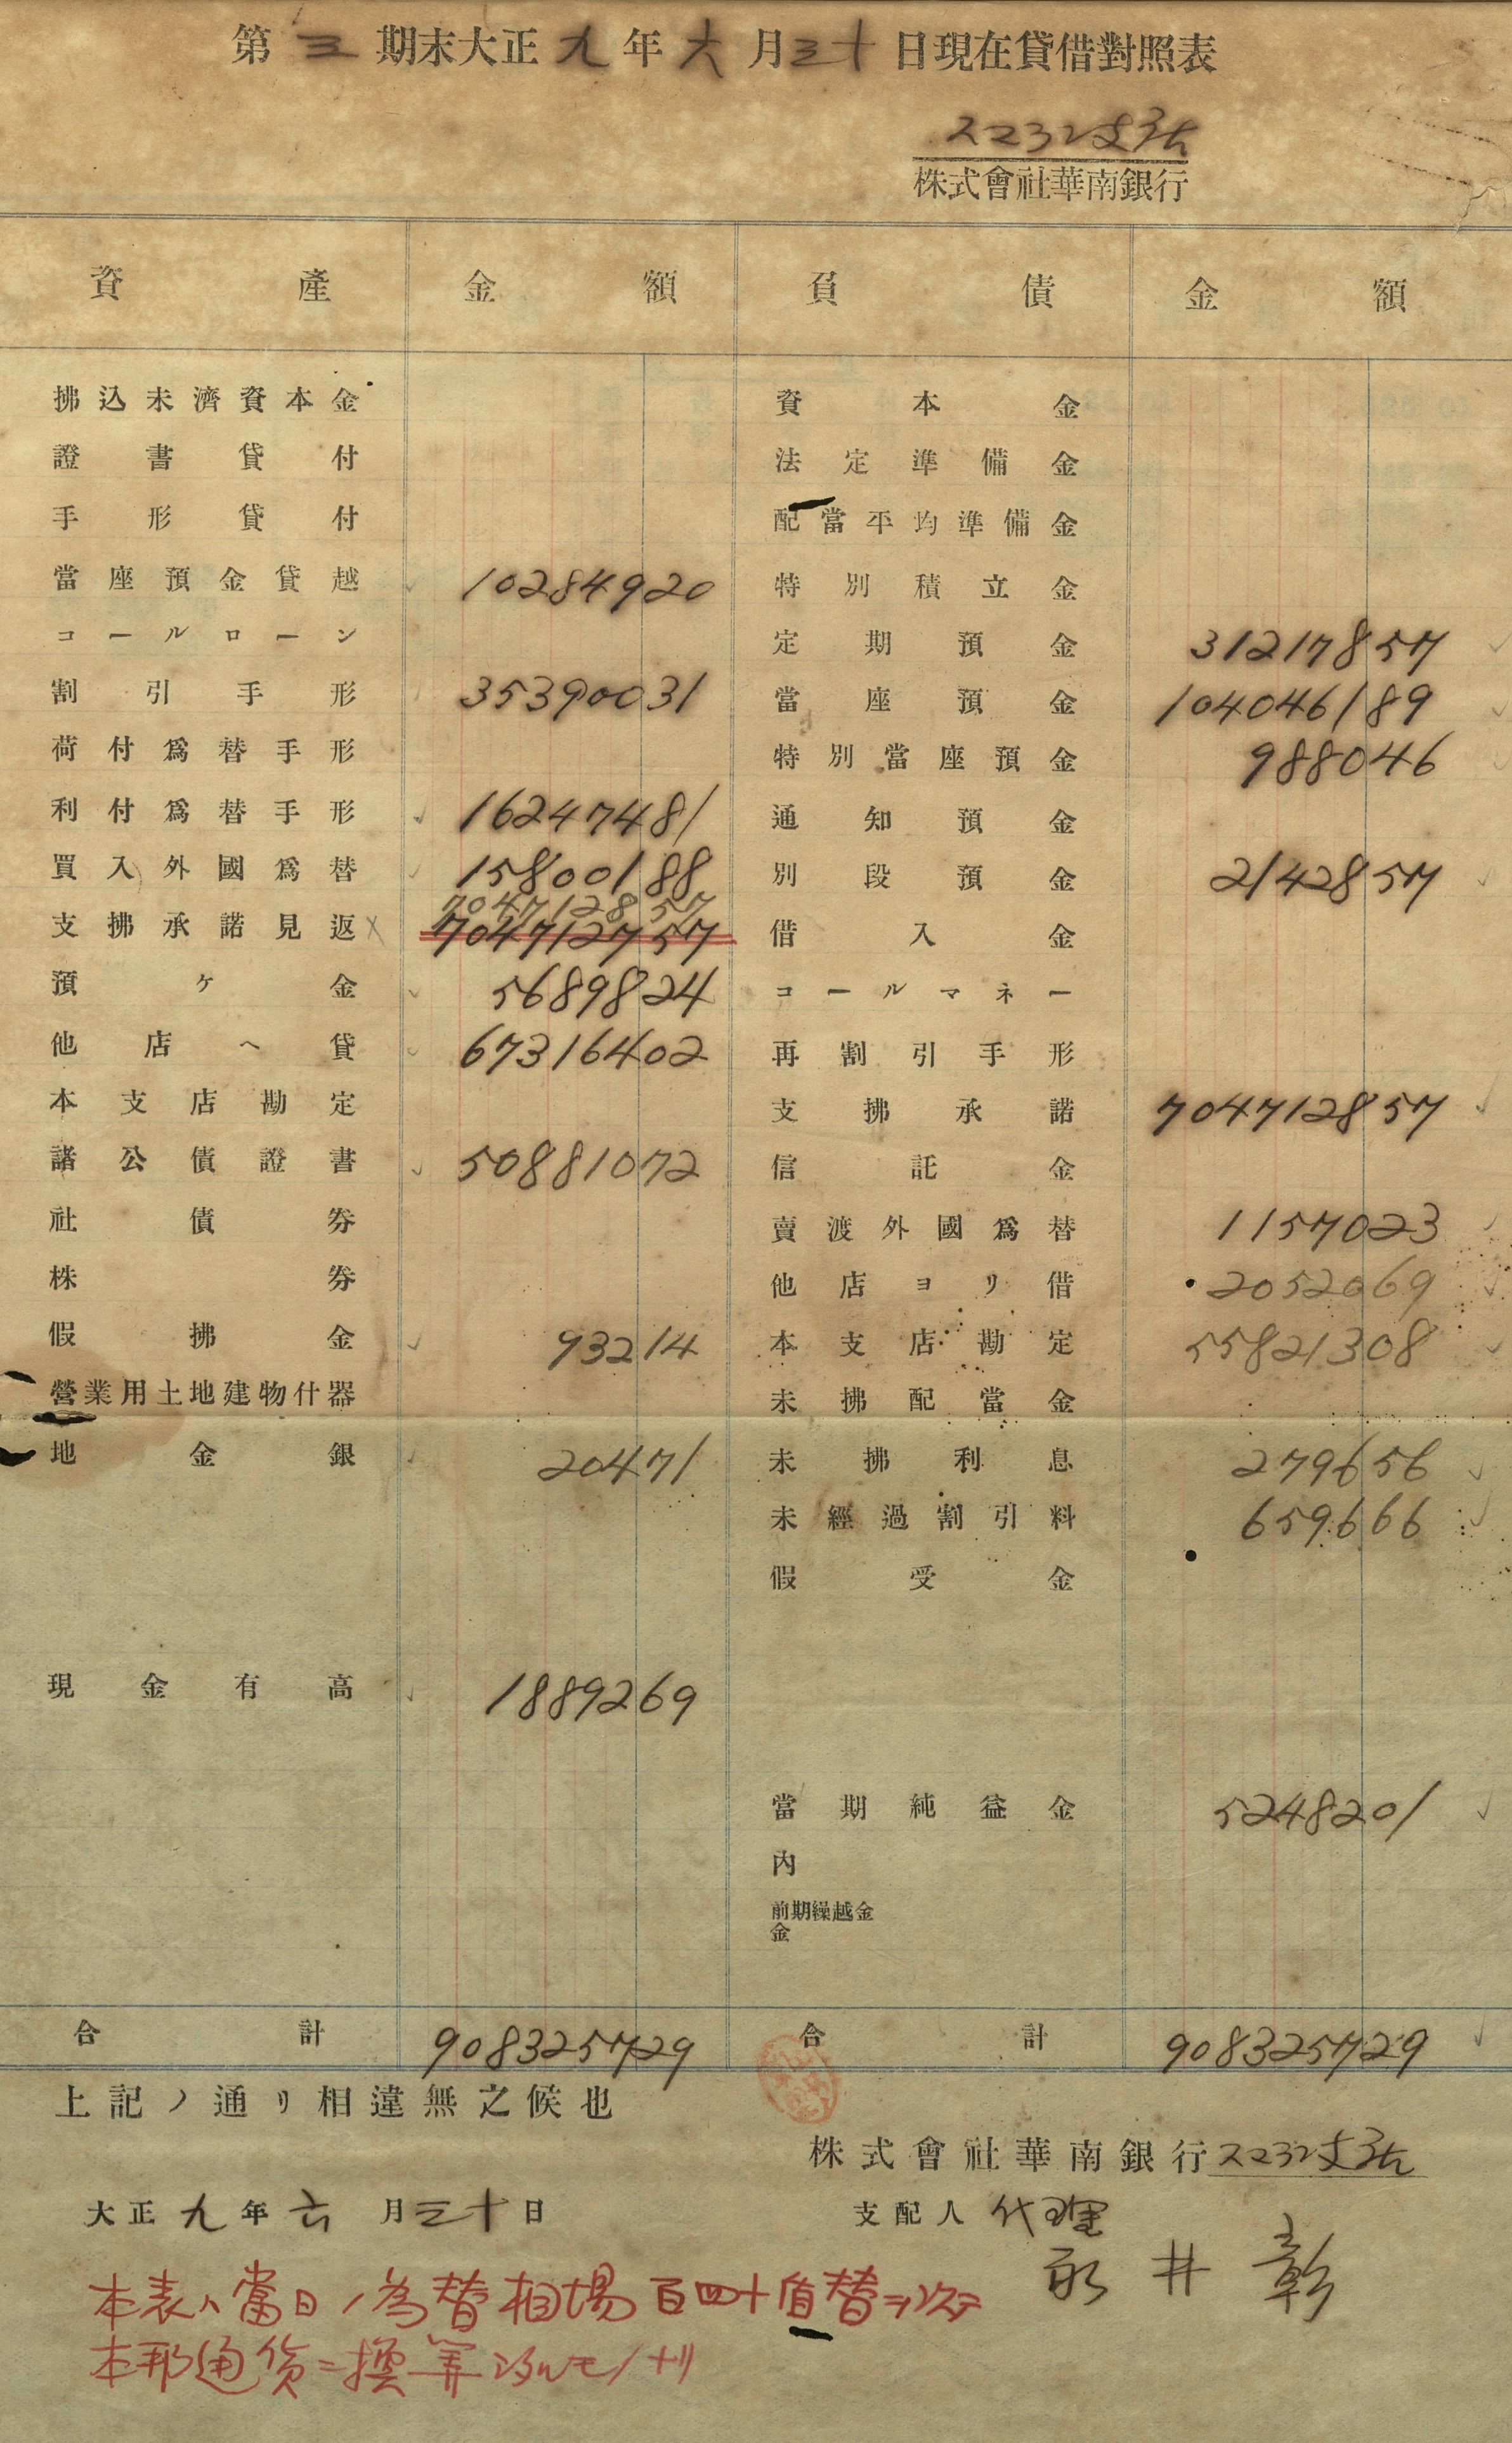 第三期末大正九年六月三十日現在貸借對照表
スマラン支店
株式會社華南銀行
資產 金額 負債 金額
拂込未濟資本金 資本金
證書貸付 法定準備金
手形貸付 配當平均準備金
當座預金貸越 10284920 特別積立金
コールローン 定期預金 31217857
割引手形 35390031 當座預金 104046189
荷付爲替手形 特別當座預金 988046
利付爲替手形 16247481 通知預金
買入外國爲替 15800188 別段預金 2142857
704712857
支拂承諾見返 704712757 借入金
預ケ金 5689824 コールマネー
他店ヘ貸 67316402 再割引手形
本支店勘定 支拂承諾 704712857
諸公債證書 50881072 信託金
社債券 賣渡外國爲替 1157023
株券 他店ヨリ借 2052069
假拂金 93214 本支店勘定 55821308
營業用土地建物什器 未拂配當金
地金銀 20471 未拂利息 279656
未經過割引料 659666
假受金
現金有高 1889269
當期純益金 5248201
內
前期繰越金
金
合計 908325729 合計 908325729
上記ノ通リ相違無之候也
株式會社華南銀行スマラン支店
大正九年六月三十日 支配人代理
永井彰
本表ハ當日ノ為替相場百四十値替ヲ以テ
本邦通貨ニ換算シタルモノナリ